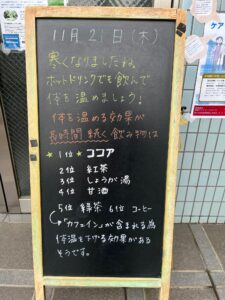 11月21日(木)
寒くなりましたね。
ホットドリンクでも飲んで
体を温めましょう!
体を温める効果が
長時間続く飲み物は
★1位★ ココア
2位 紅茶
3位 しょうが湯
4位 甘酒
5位 緑茶 6位 コーヒー
↳「カフェイン」が含まれる為
体温を下げる効果がある
そうです。
ケア